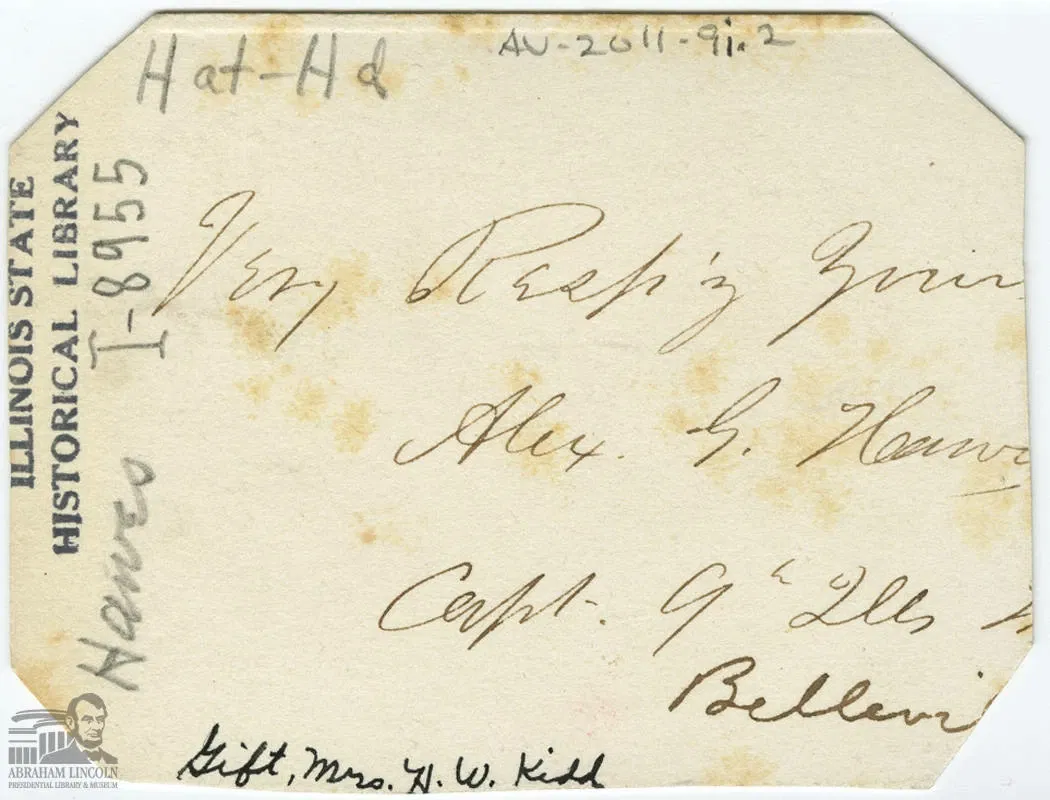 AV-2011-9i.2
Hat-Hd
ILLINOIS STATE
HISTORICAL LIBRARY
I-8955
Hawes
Very Resp'y Your
Alex. G. Hawe
Capt. 9th Ills
Bellevil
Gift, Mrs. H. W. Kidd
ABRAHAM LINCOLN
PRESIDENTIAL LIBRARY & MUSEUM